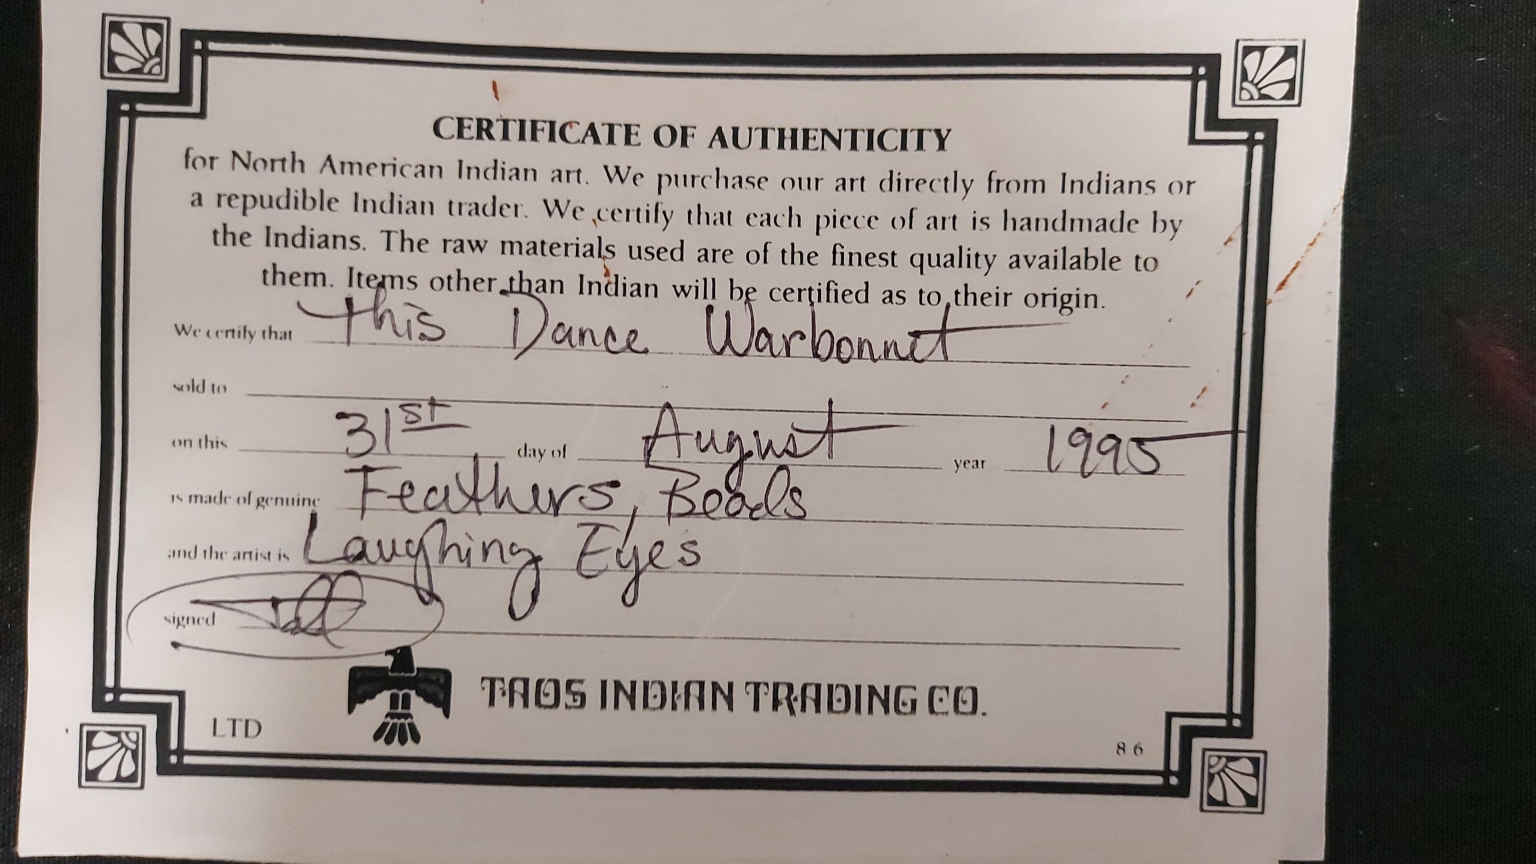 CERTIFICATE OF AUTHENTICITY
for North American Indian art. We purchase our art directly from Indians or
a repudible Indian trader. We certify that each piece of art is handmade by
the Indians. The raw materials used are of the finest quality available to
them. Items other than Indian will be certified as to their origin.
We certify that This Dance Warbonnet
sold to
on this 31st day of August year 1995
is made of genuine Feathers, Beads
and the artist is Laughing Eyes
signed
TAOS INDIAN TRADING CO.
LTD
86